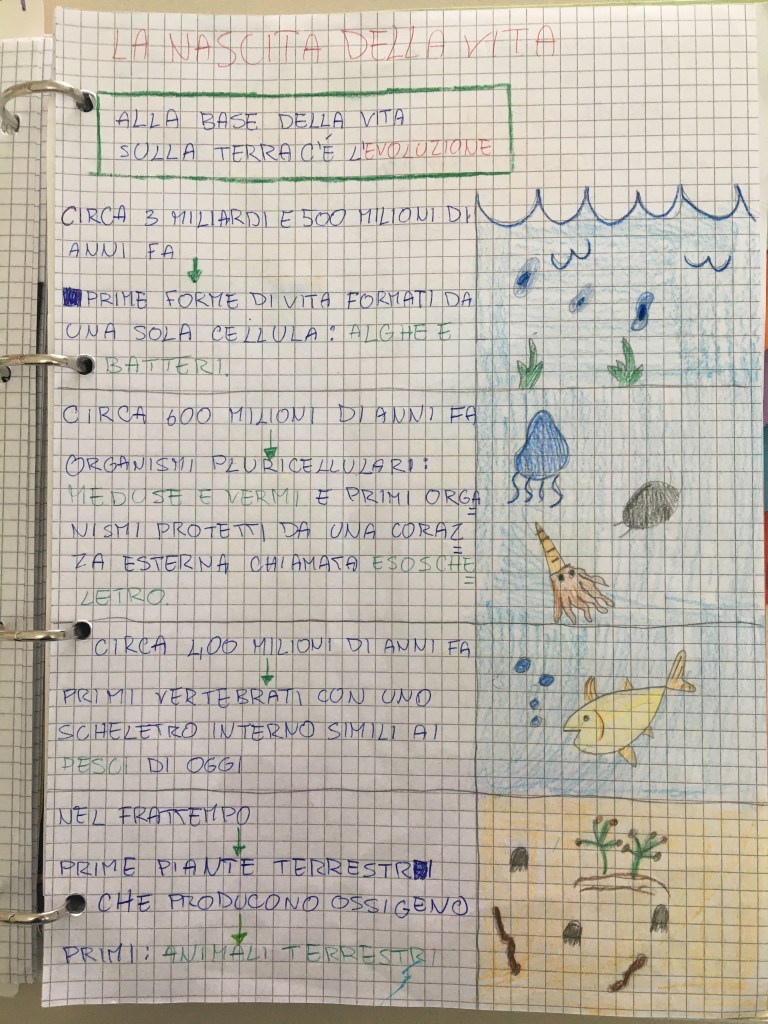 LA NASCITA DELLA VITA
ALLA BASE DELLA VITA
SULLA TERRA C'É L'EVOLUZIONE
CIRCA 3 MILIARDI E 500 MILIONI DI
ANNI FA
PRIME FORME DI VITA FORMATI DA
UNA SOLA CELLULA: ALGHE E
BATTERI.
CIRCA 600 MILIONI DI ANNI FA
ORGANISMI PLURICELLULARI:
MEDUSE E VERMI E PRIMI ORGA
NISMI PROTETTI DA UNA CORAZ
ZA ESTERNA CHIAMATA ESOSCHE
LETRO.
CIRCA 400 MILIONI DI ANNI FA
PRIMI VERTEBRATI CON UNO
SCHELETRO INTERNO SIMILI AI
PESCI DI OGGI
NEL FRATTEMPO
PRIME PIANTE TERRESTRI
CHE PRODUCONO OSSIGENO
PRIMI: ANIMALI TERRESTRI